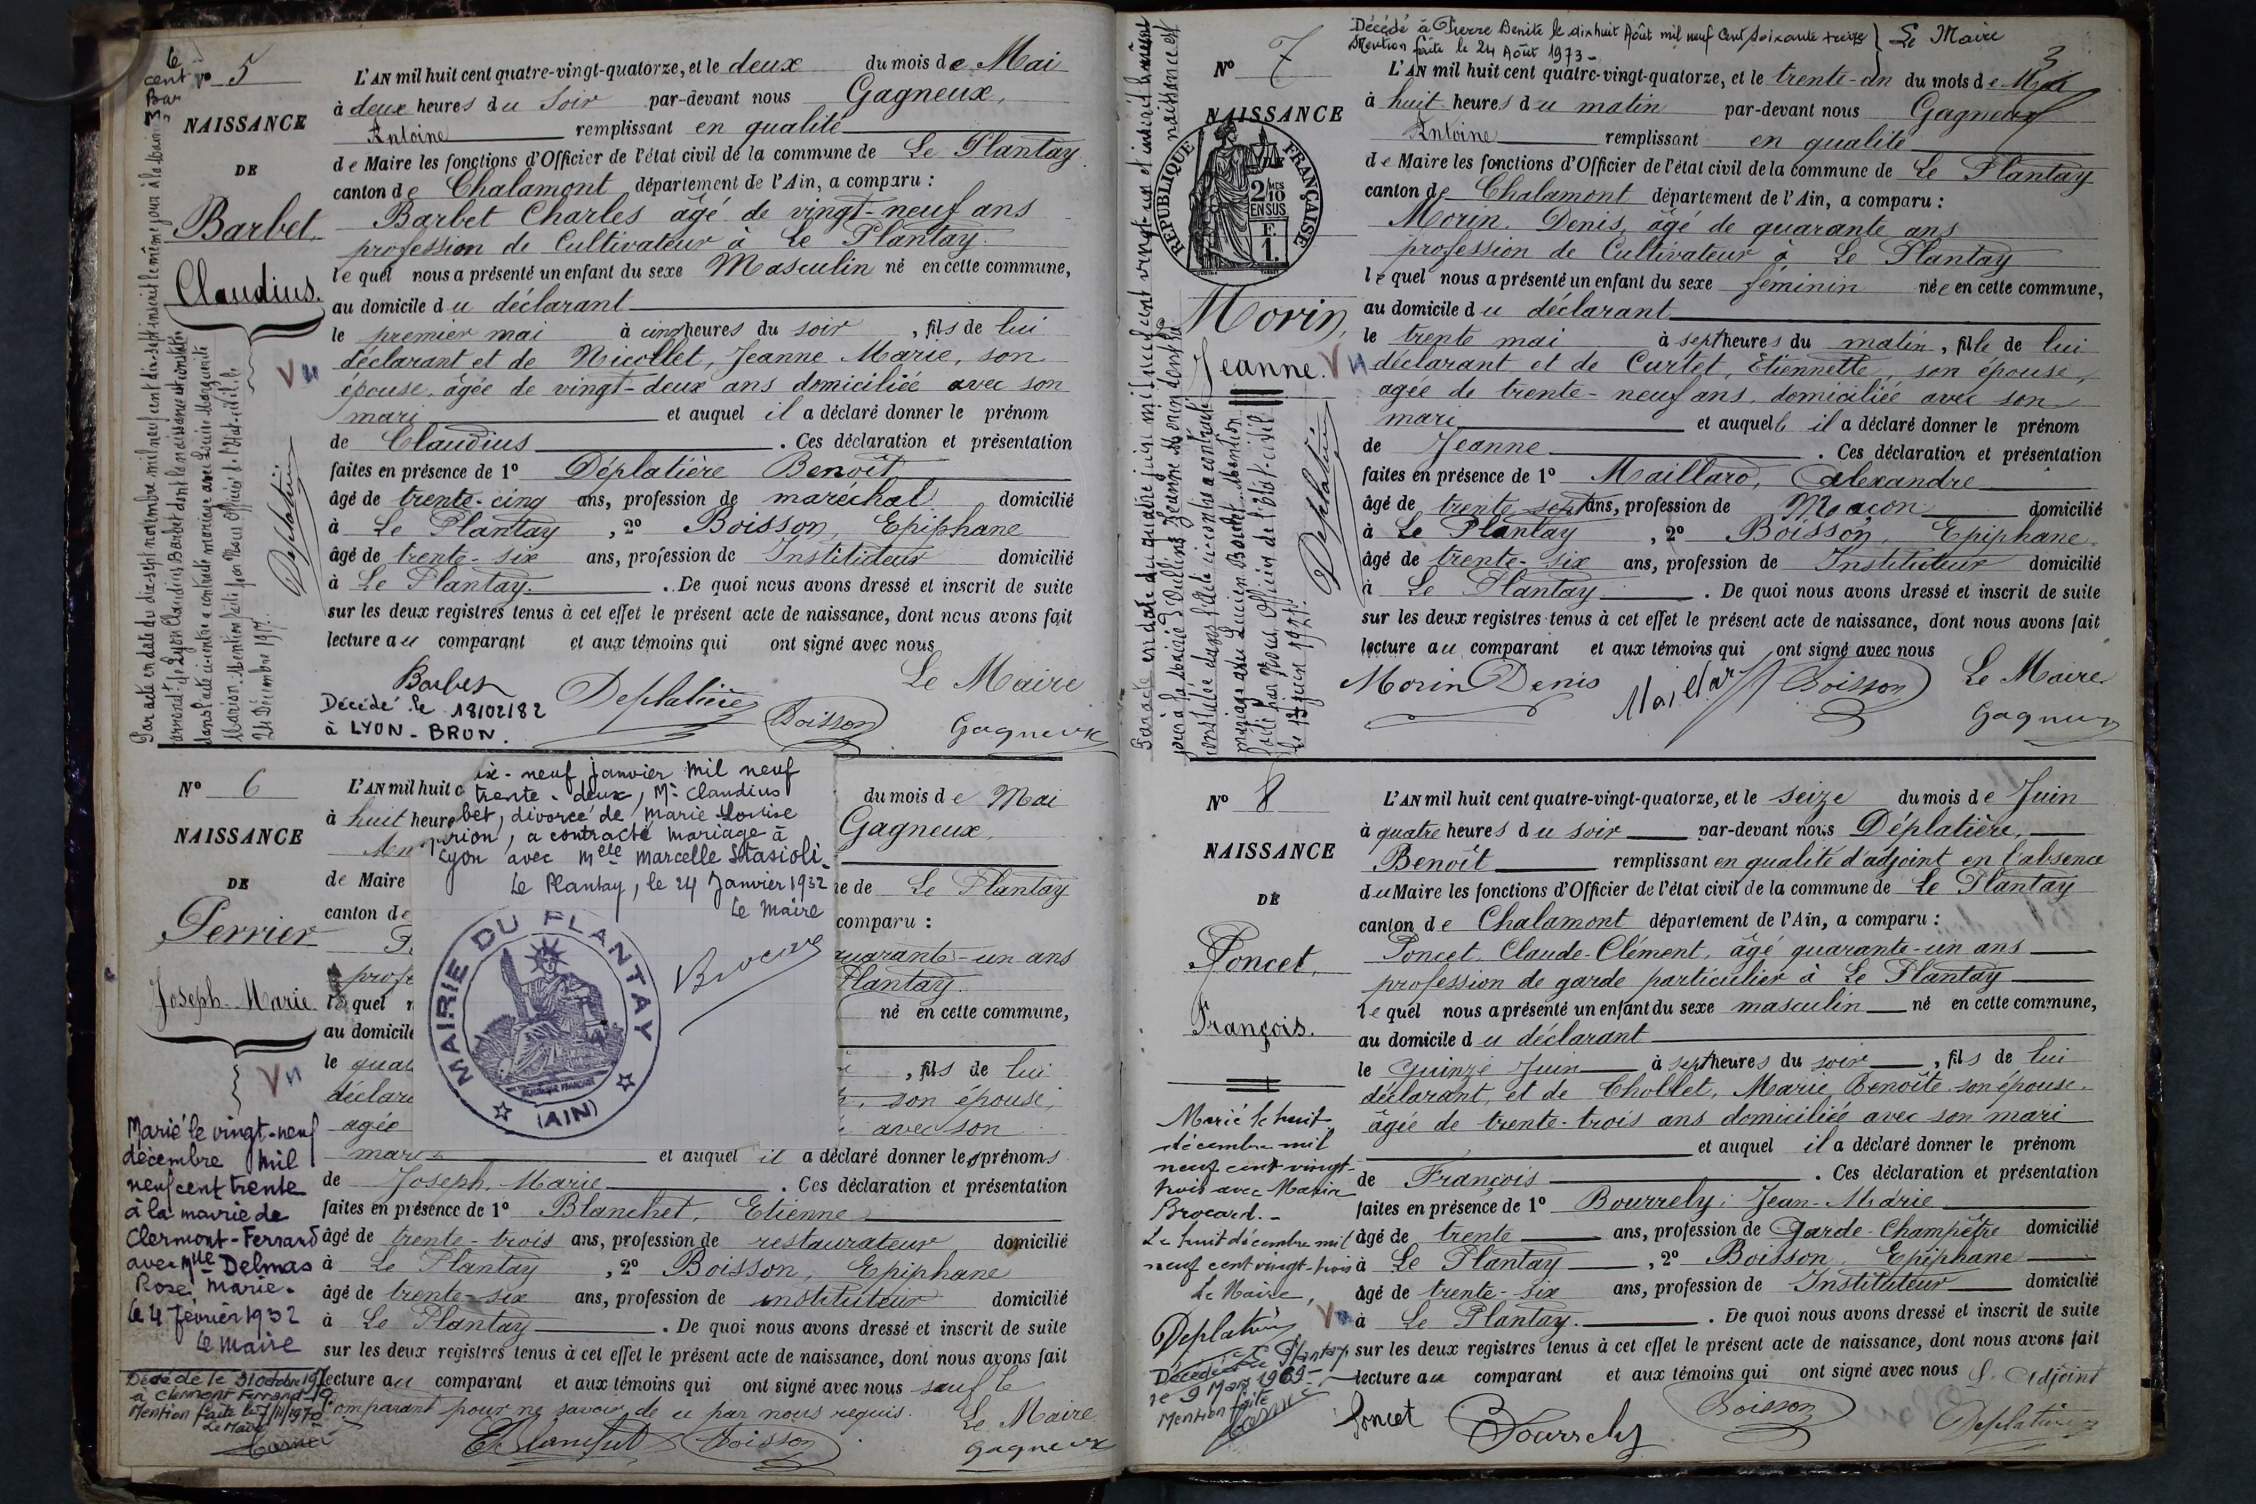 N° 5
NAISSANCE
DE
Barbet
Claudius.
L'AN mil huit cent quatre-vingt-quatorze, et le deux du mois de Mai
à deux heures du soir par-devant nous Gagneux,
Antoine remplissant en qualité
de Maire les fonctions d'Officier de l'état civil de la commune de Le Plantay
canton de Chalamont département de l'Ain, a comparu :
Barbet Charles âgé de vingt-neuf ans
profession de Cultivateur à Le Plantay.
lequel nous a présenté un enfant du sexe Masculin né en cette commune,
au domicile du déclarant
le premier mai à cinq heures du soir, fils de lui
déclarant et de Nicollet, Jeanne Marie, son
épouse, âgée de vingt-deux ans domiciliée avec son
mari et auquel il a déclaré donner le prénom
de Claudius. Ces déclaration et présentation
faites en présence de 1° Déplatière Benoît
âgé de trente-cinq ans, profession de maréchal domicilié
à Le Plantay, 2° Boisson, Epiphane
âgé de trente-six ans, profession de Instituteur domicilié
à Le Plantay. De quoi nous avons dressé et inscrit de suite
sur les deux registres tenus à cet effet le présent acte de naissance, dont nous avons fait
lecture au comparant et aux témoins qui ont signé avec nous
Le Maire
Barbet Deplatière Boisson Gagneux
Décédé le 18/02/82
à LYON-BRON.
Par acte en date du dix sept novembre mil neuf cent dix-sept inscrit le même jour à la mairie du
arrondt de Lyon Claudius Barbet dont la naissance est constatée
dans l'acte ci-contre a contracté mariage avec Louise Marguerite
Marion. Mention faite par Nous Officier de l'état-civil le
24 Décembre 1917.
Deplatière
Vu
N° 6
NAISSANCE
DE
Perrier
Joseph-Marie.
Vu
L'AN mil huit c du mois de Mai
à huit heure Gagneux,
de Maire e de Le Plantay
canton de comparu :
quarante-un ans
profe Plantay.
lequel n né en cette commune,
au domicile
le quat , fils de lui
déclara son épouse,
agée avec son
mari et auquel il a déclaré donner les prénoms
de Joseph-Marie. Ces déclaration et présentation
faites en présence de 1° Blanchet, Etienne
âgé de trente-trois ans, profession de restaurateur domicilié
à Le Plantay, 2° Boisson, Epiphane
âgé de trente-six ans, profession de instituteur domicilié
à Le Plantay. De quoi nous avons dressé et inscrit de suite
sur les deux registres tenus à cet effet le présent acte de naissance, dont nous avons fait
lecture au comparant et aux témoins qui ont signé avec nous sauf le
comparant pour ne savoir de ce par nous requis. Le Maire
Boisson Gagneux
ix-neuf janvier mil neuf
trente-deux, Mr Claudius
bet, divorcé de Marie Louise
rion, a contracté mariage à
Lyon avec Melle Marcelle Stasioli.
Le Plantay, le 24 Janvier 1932
Le Maire
MAIRIE DU PLANTAY
(AIN)
Marié le vingt-neuf
décembre mil
neuf cent trente
à la mairie de
Clermont-Ferrand
avec Mlle Delmas
Rose Marie.
le 4 février 1932
Le Maire
Décédé le 31 octobre
à Clermont Ferrand
Mention faite le 7/11/1970
Le Maire
Décédé à Pierre Bénite le dix huit Août mil neuf cent soixante treize
Mention faite le 24 Août 1973 - Le Maire
3
N° 7
NAISSANCE
RÉPUBLIQUE FRANÇAISE
2/10 EN SUS
F. 1.
Morin,
Jeanne.
Vu
L'AN mil huit cent quatre-vingt-quatorze, et le trente-un du mois de Mai
à huit heures du matin par-devant nous Gagneux
Antoine remplissant en qualité
de Maire les fonctions d'Officier de l'état civil de la commune de Le Plantay
canton de Chalamont département de l'Ain, a comparu :
Morin. Denis, âgé de quarante ans
profession de Cultivateur à Le Plantay
lequel nous a présenté un enfant du sexe féminin née en cette commune,
au domicile du déclarant
le trente mai à sept heures du matin, fille de lui
déclarant et de Curtet, Etiennette, son épouse,
agée de trente-neuf ans, domiciliée avec son
mari et auquelle il a déclaré donner le prénom
de Jeanne. Ces déclaration et présentation
faites en présence de 1° Maillard, Alexandre
âgé de trente sept ans, profession de Maçon domicilié
à Le Plantay, 2° Boisson, Epiphane
âgé de trente-six ans, profession de Instituteur domicilié
à Le Plantay. De quoi nous avons dressé et inscrit de suite
sur les deux registres tenus à cet effet le présent acte de naissance, dont nous avons fait
lecture au comparant et aux témoins qui ont signé avec nous
Le Maire
Morin Denis Maillard Boisson Gagneux
Par acte en date du quatre juin mil neuf cent vingt-un et inscrit le même
jour à la mairie d'Oullins Jeanne Morin dont la naissance est
constatée dans l'acte ci-contre a contracté
mariage avec Lucien Mention
faite par Nous Officier de l'état-civil
le 13 juin 1921.
Deplatière
N° 8
NAISSANCE
DE
Poncet,
François.
L'AN mil huit cent quatre-vingt-quatorze, et le seize du mois de Juin
à quatre heures du soir par-devant nous Déplatière,
Benoît remplissant en qualité d'adjoint en l'absence
du Maire les fonctions d'Officier de l'état civil de la commune de Le Plantay
canton de Chalamont département de l'Ain, a comparu :
Poncet Claude-Clément, âgé quarante-un ans
profession de garde particulier à Le Plantay
lequel nous a présenté un enfant du sexe masculin né en cette commune,
au domicile du déclarant
le Quinze Juin à sept heures du soir, fils de lui
déclarant, et de Chollet, Marie Benoîte son épouse.
âgée de trente-trois ans domiciliée avec son mari
et auquel il a déclaré donner le prénom
de François. Ces déclaration et présentation
faites en présence de 1° Bourrely, Jean-Marie
âgé de trente ans, profession de Garde-Champêtre domicilié
à Le Plantay, 2° Boisson, Epiphane
âgé de trente-six ans, profession de Instituteur domicilié
à Le Plantay. De quoi nous avons dressé et inscrit de suite
sur les deux registres tenus à cet effet le présent acte de naissance, dont nous avons fait
lecture au comparant et aux témoins qui ont signé avec nous L'Adjoint
Poncet Bourrely Boisson Deplatière
Marié le huit
décembre mil
neuf cent vingt-
trois avec Marie
Brocard.-
Le huit décembre mil
neuf cent vingt-trois
Le Maire,
Deplatière
Vu
Décédé au Plantay
le 9 Mars 1969
Mention faite